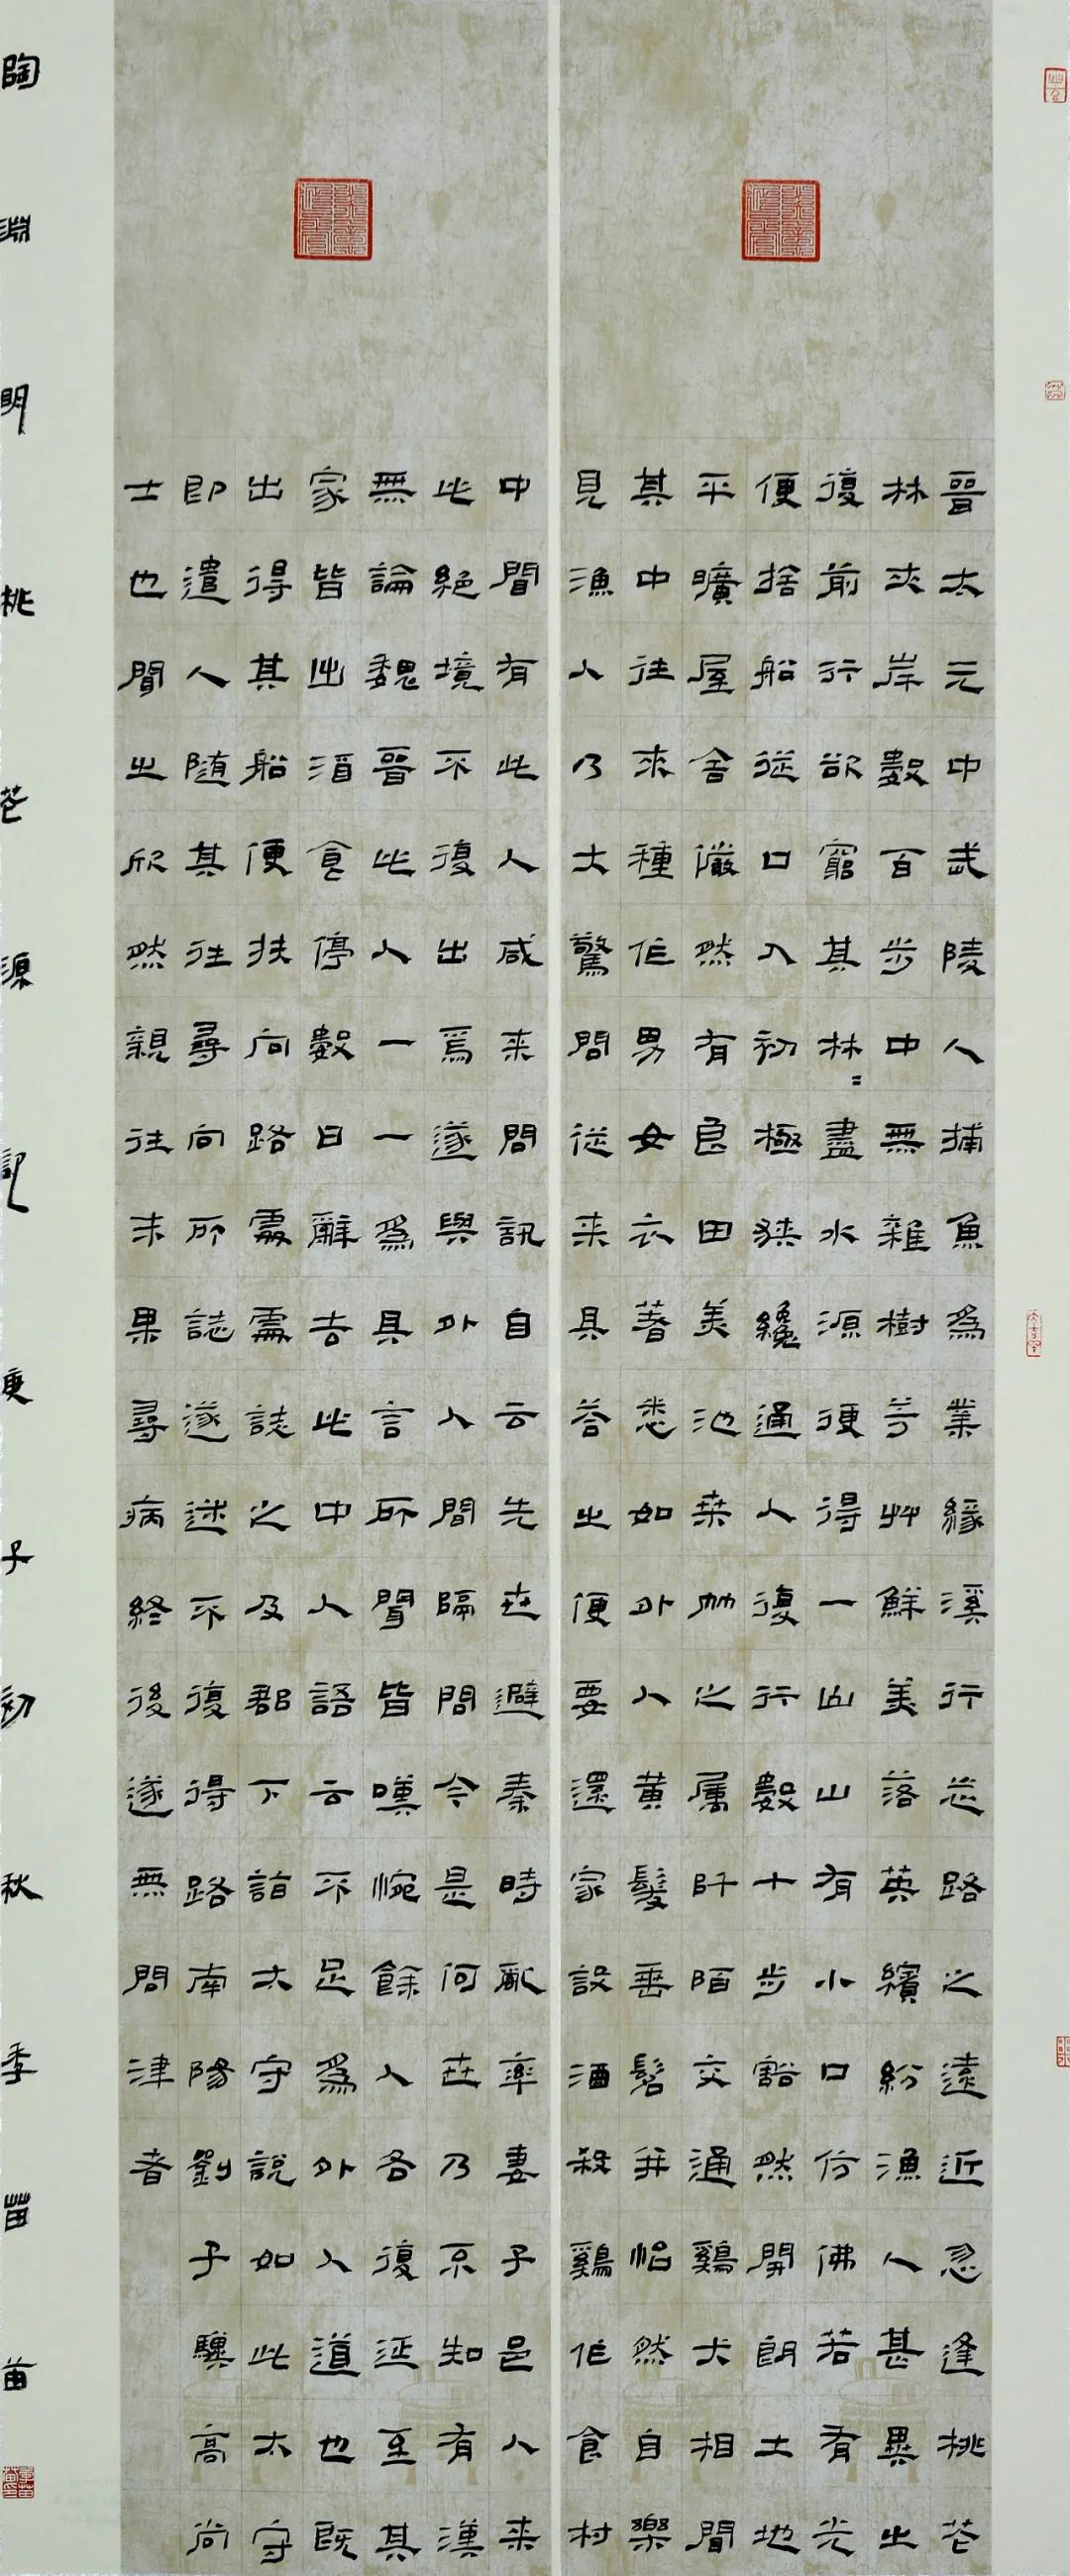 晉太元中武陵人捕魚為業緣溪行忘路之遠近忽逢桃芲
林夾岸數百步中無雜樹芳艸鮮美落英繽紛漁人甚異之
復前行欲窮其林=盡水源便得一山山有小口仿佛若有光
便捨船從口入初極狹纔通人復行數十步豁然開朗土地
平曠屋舍儼然有良田美池桑竹之属阡陌交通鷄犬相聞
其中往來種作男女衣著悉如外人黃髮垂髫并怡然自樂
見漁人乃大驚問從来具荅之便要還家設酒殺鷄作食村
中聞有此人咸来問訊自云先世避秦時亂率妻子邑人来
此絕境不復出焉遂與外人間隔問今是何世乃不知有漢
無論魏晉此人一一為具言所聞皆嘆惋餘人各復延至其
家皆出酒食停數日辭去此中人語云不足為外人道也既
出得其船便扶向路處處誌之及郡下詣太守說如此太守
即遣人随其往尋向所誌遂迷不復得路南陽劉子驥高尚
士也聞之欣然親往未果尋病終後遂無問津者
陶淵明桃芲源記庚子初秋季苗苗